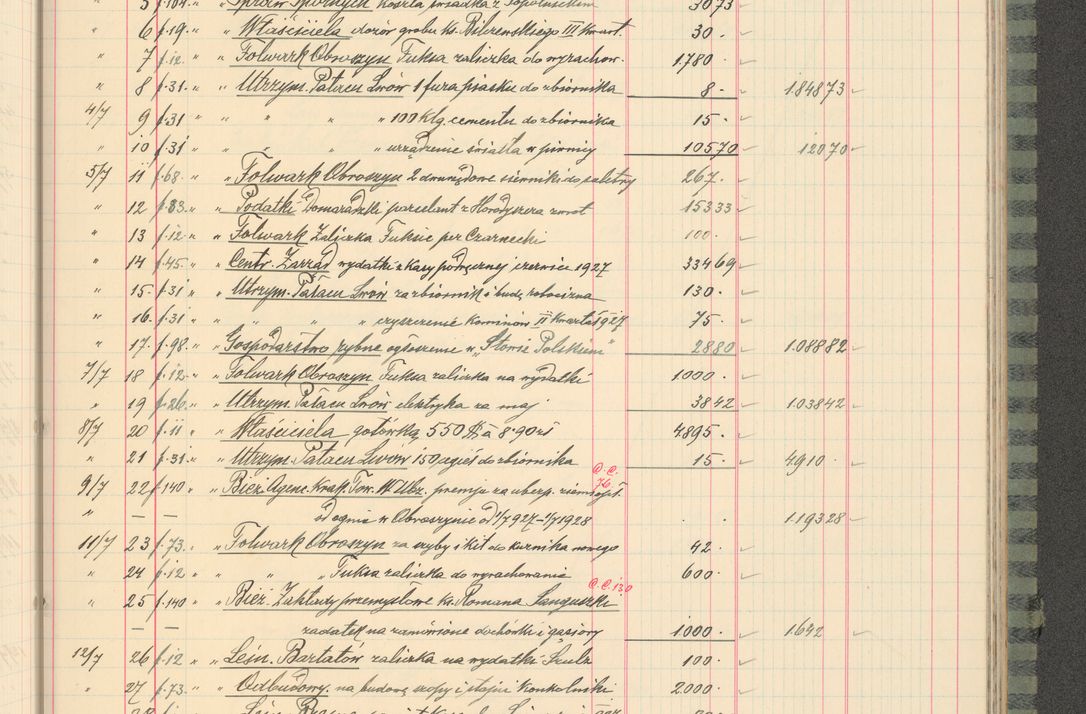 " 5 f.104. " " Spraw Spornych koszta 3073
" 6 f.19. " " Właściciela dozór grobu ks. Bilczewskiego III kwart. 30 .
" 7 f.12. " " Folwark Obroszyn Fuksa zaliczka do wyrachow. 1780 .
" 8 f.31. " " Utrzym. Pałacu Lwów 1 fura piasku do zbiornika 8 . 184873
4/7 9 f.31 " " " " " 100 klg. cementu do zbiornika 15 .
" 10 f.31 " " " " " urządzenie światła w piwnicy 10570 12070
5/7 11 f.68. " Folwark Obroszyn 2 dwurzędowe siewniki do saletry 267 .
" 12 f.83. " " Podatki Domaradzki parcelant z zwrot 15333
" 13 f.12 " " Folwark Zaliczka Fuksie per Czarnecki 100 .
" 14 f.45. " " Centr. Zarząd wydatki z kasy podręcznej czerwiec 1927 33469
" 15. f.31 " " Utrzym. Pałacu Lwów za zbiornik i budę robocizna 130 .
" 16. f.31 " " " " " czyszczenie kominów II kwartał 1927 75 .
" 17. f.98. " " Gospodarstwo rybne ogłoszenie w "Słowie Polskiem" 2880 1.08882
7/7 18 f.12 " " Folwark Obroszyn Fuksa zaliczka na wydatki 1000 .
" 19 f.26. " " Utrzym. Pałacu Lwów elektryka za maj 3842 1.03842
8/7 20 f.11 " " Właściciela gotówką 550 $ à 8.90 zł 4895 .
" 21 f.31. " " Utrzym. Pałacu Lwów 150 cegieł do zbiornika 15 . 4910 .
C.C. 76.
9/7 22 f.140 " Bież. Agenc. Krak. Tow. W. Ubz. premja za ubezp. ziemiopł.
" — — od ognia w Obroszynie od 1/7 927 - 1/7 1928 . . 1.19328
11/7 23 f.73. " Folwark Obroszyn za szyby i kit do kurnika nowego 42 .
" 24 f.12 " " " " Fuksa zaliczka do wyrachowania 600 .
C.C. 130
" 25 f.140 " Bież. Zakłady przemysłowe ks. Romana Sanguszki
— — zadatek na zamówione dachówki i gąsiory 1000 . 1.642
12/7 26 f.12 " " Leśn. Bartatów zaliczka na wydatki Szulz 100 .
" 27 f.73. " " Odbudowy. na budowę szopy i stajni Konkolniki 2000 .